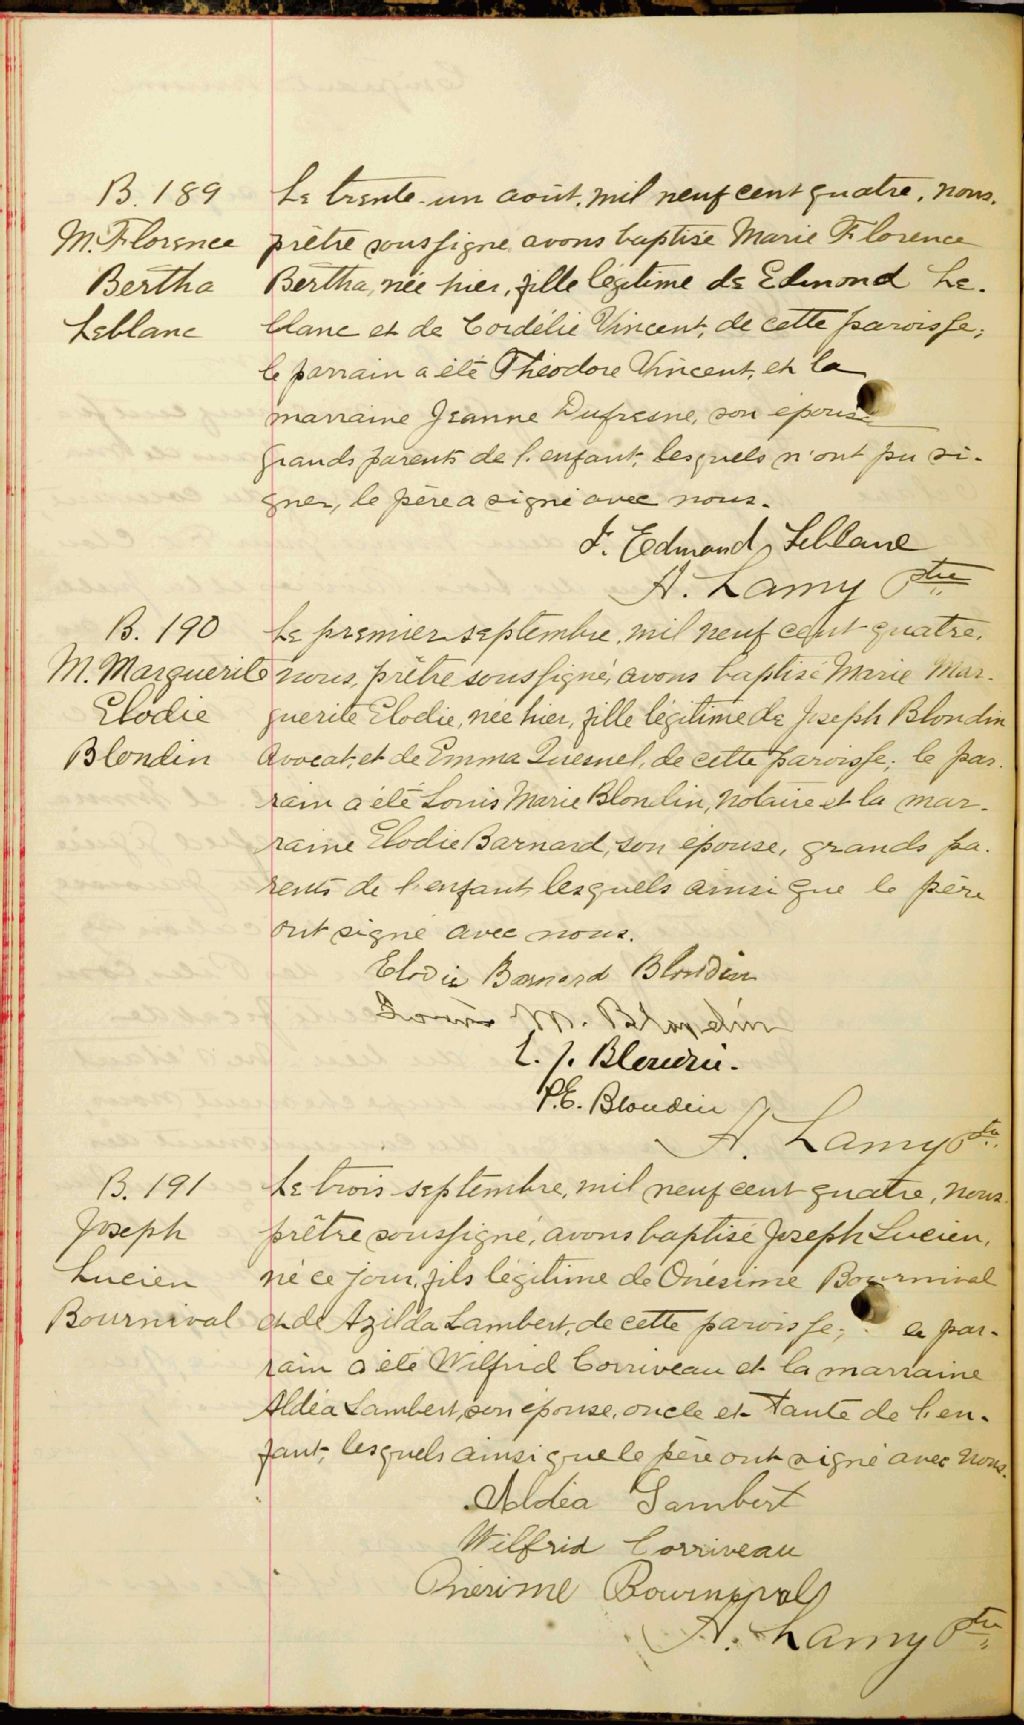 B. 189
M. Florence
Bertha
Leblanc
Le trente-un août, mil neuf cent quatre, nous,
prêtre soussigné avons baptisé Marie Florence
Bertha, née hier, fille légitime de Edmond Le-
blanc et de Cordélie Vincent, de cette paroisse;
le parrain a été Théodore Vincent, et la
marraine Jeanne Dufresne, son épouse
grands parents de l'enfant, lesquels n'ont pu si-
gner, le père a signé avec nous.
J. Edmond Leblanc
H. Lamy Ptre
B. 190
M. Marguerite
Elodie
Blondin
Le premier septembre, mil neuf cent quatre,
nous, prêtre soussigné, avons baptisé Marie Mar-
guerite Elodie, née hier, fille légitime de Joseph Blondin
Avocat, et de Emma Quesnel, de cette paroisse; le par-
rain a été Louis Marie Blondin, Notaire et la mar-
raine Elodie Barnard, son épouse, grands pa-
rents de l'enfant, lesquels ainsi que le père
ont signé avec nous.
Elodie Barnard Blondin
M. Blondin
L. J. Blondin.
P.E. Blondin
H. Lamy Ptre
B. 191
Joseph
Lucien
Bournival
Le trois septembre, mil neuf cent quatre, nous
prêtre soussigné, avons baptisé Joseph Lucien,
né ce jour, fils légitime de Onésime Bournival
et de Azilda Lambert, de cette paroisse; le par-
rain a été Wilfrid Corriveau et la marraine
Aldéa Lambert, son épouse, oncle et tante de l'en-
fant, lesquels ainsi que le père ont signé avec nous.
Aldéa Lambert
Wilfrid Corriveau
Onésime Bournival
H. Lamy Ptre